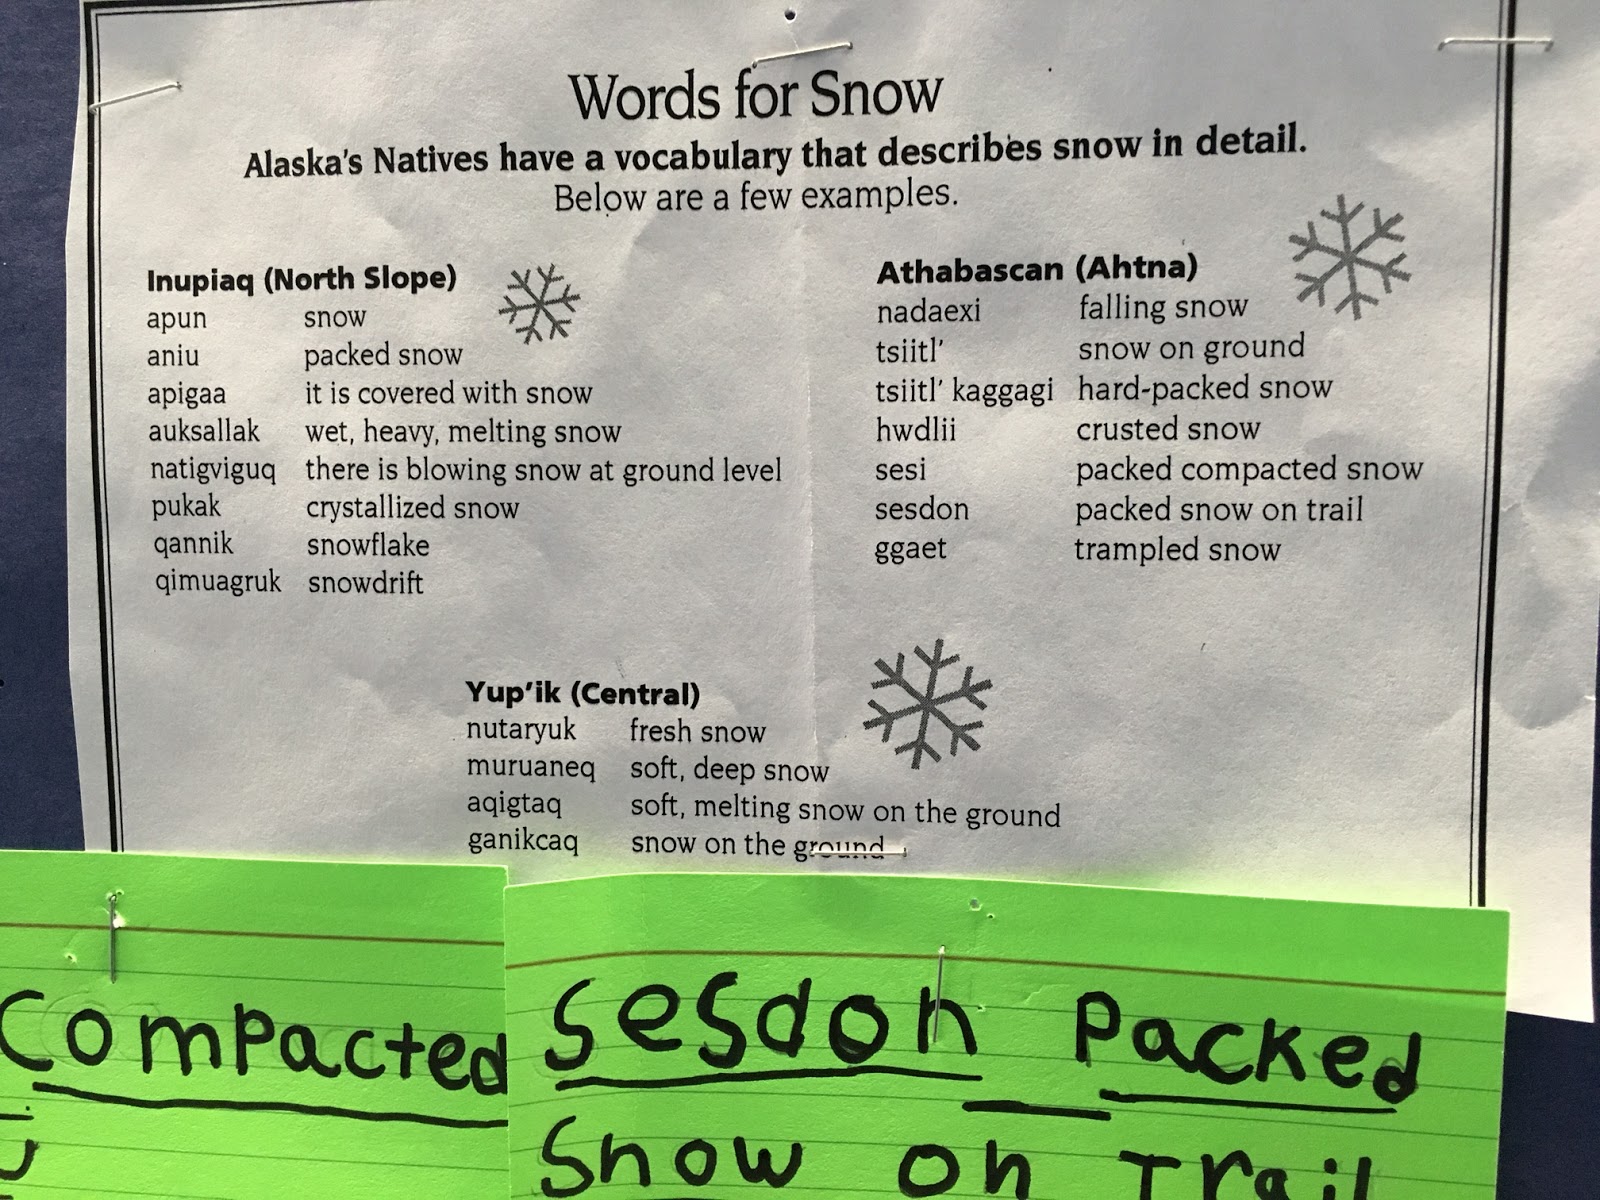 Words for Snow
Alaska's Natives have a vocabulary that describes snow in detail.
Below are a few examples.
Inupiaq (North Slope)
apun snow
aniu packed snow
apigaa it is covered with snow
auksallak wet, heavy, melting snow
natigviguq there is blowing snow at ground level
pukak crystallized snow
qannik snowflake
qimuagruk snowdrift
Athabascan (Ahtna)
nadaexi falling snow
tsiitl' snow on ground
tsiitl' kaggagi hard-packed snow
hwdlii crusted snow
sesi packed compacted snow
sesdon packed snow on trail
ggaet trampled snow
Yup'ik (Central)
nutaryuk fresh snow
muruaneq soft, deep snow
aqigtaq soft, melting snow on the ground
ganikcaq snow on the ground
Compacted
Sesdon Packed
Snow on Trail